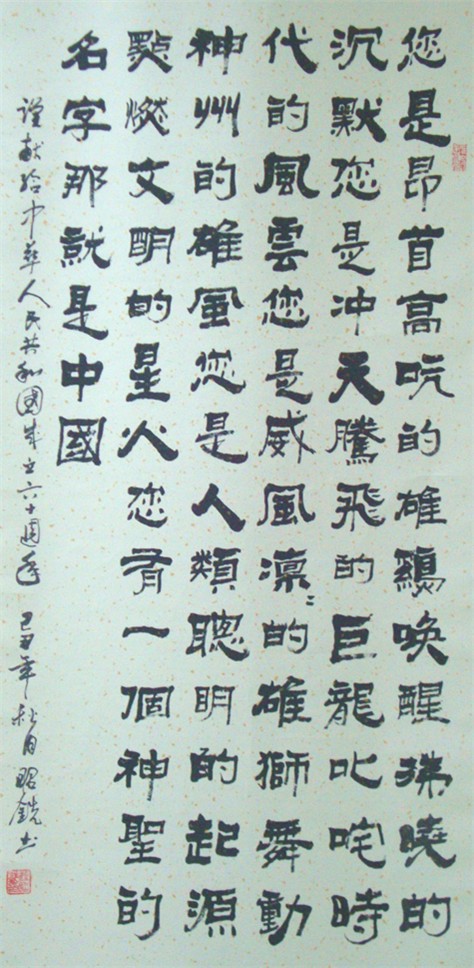 您是昂首高吭的雄鷄唤醒拂曉的
沉默您是冲天騰飛的巨龍叱咤時
代的風雲您是威風凜〻的雄獅舞動
神州的雄風您是人類聰明的起源
點燃文明的星火您有一個神聖的
名字那就是中國
谨献给中華人民共和國成立六十周年 己丑年秋月昭銑书